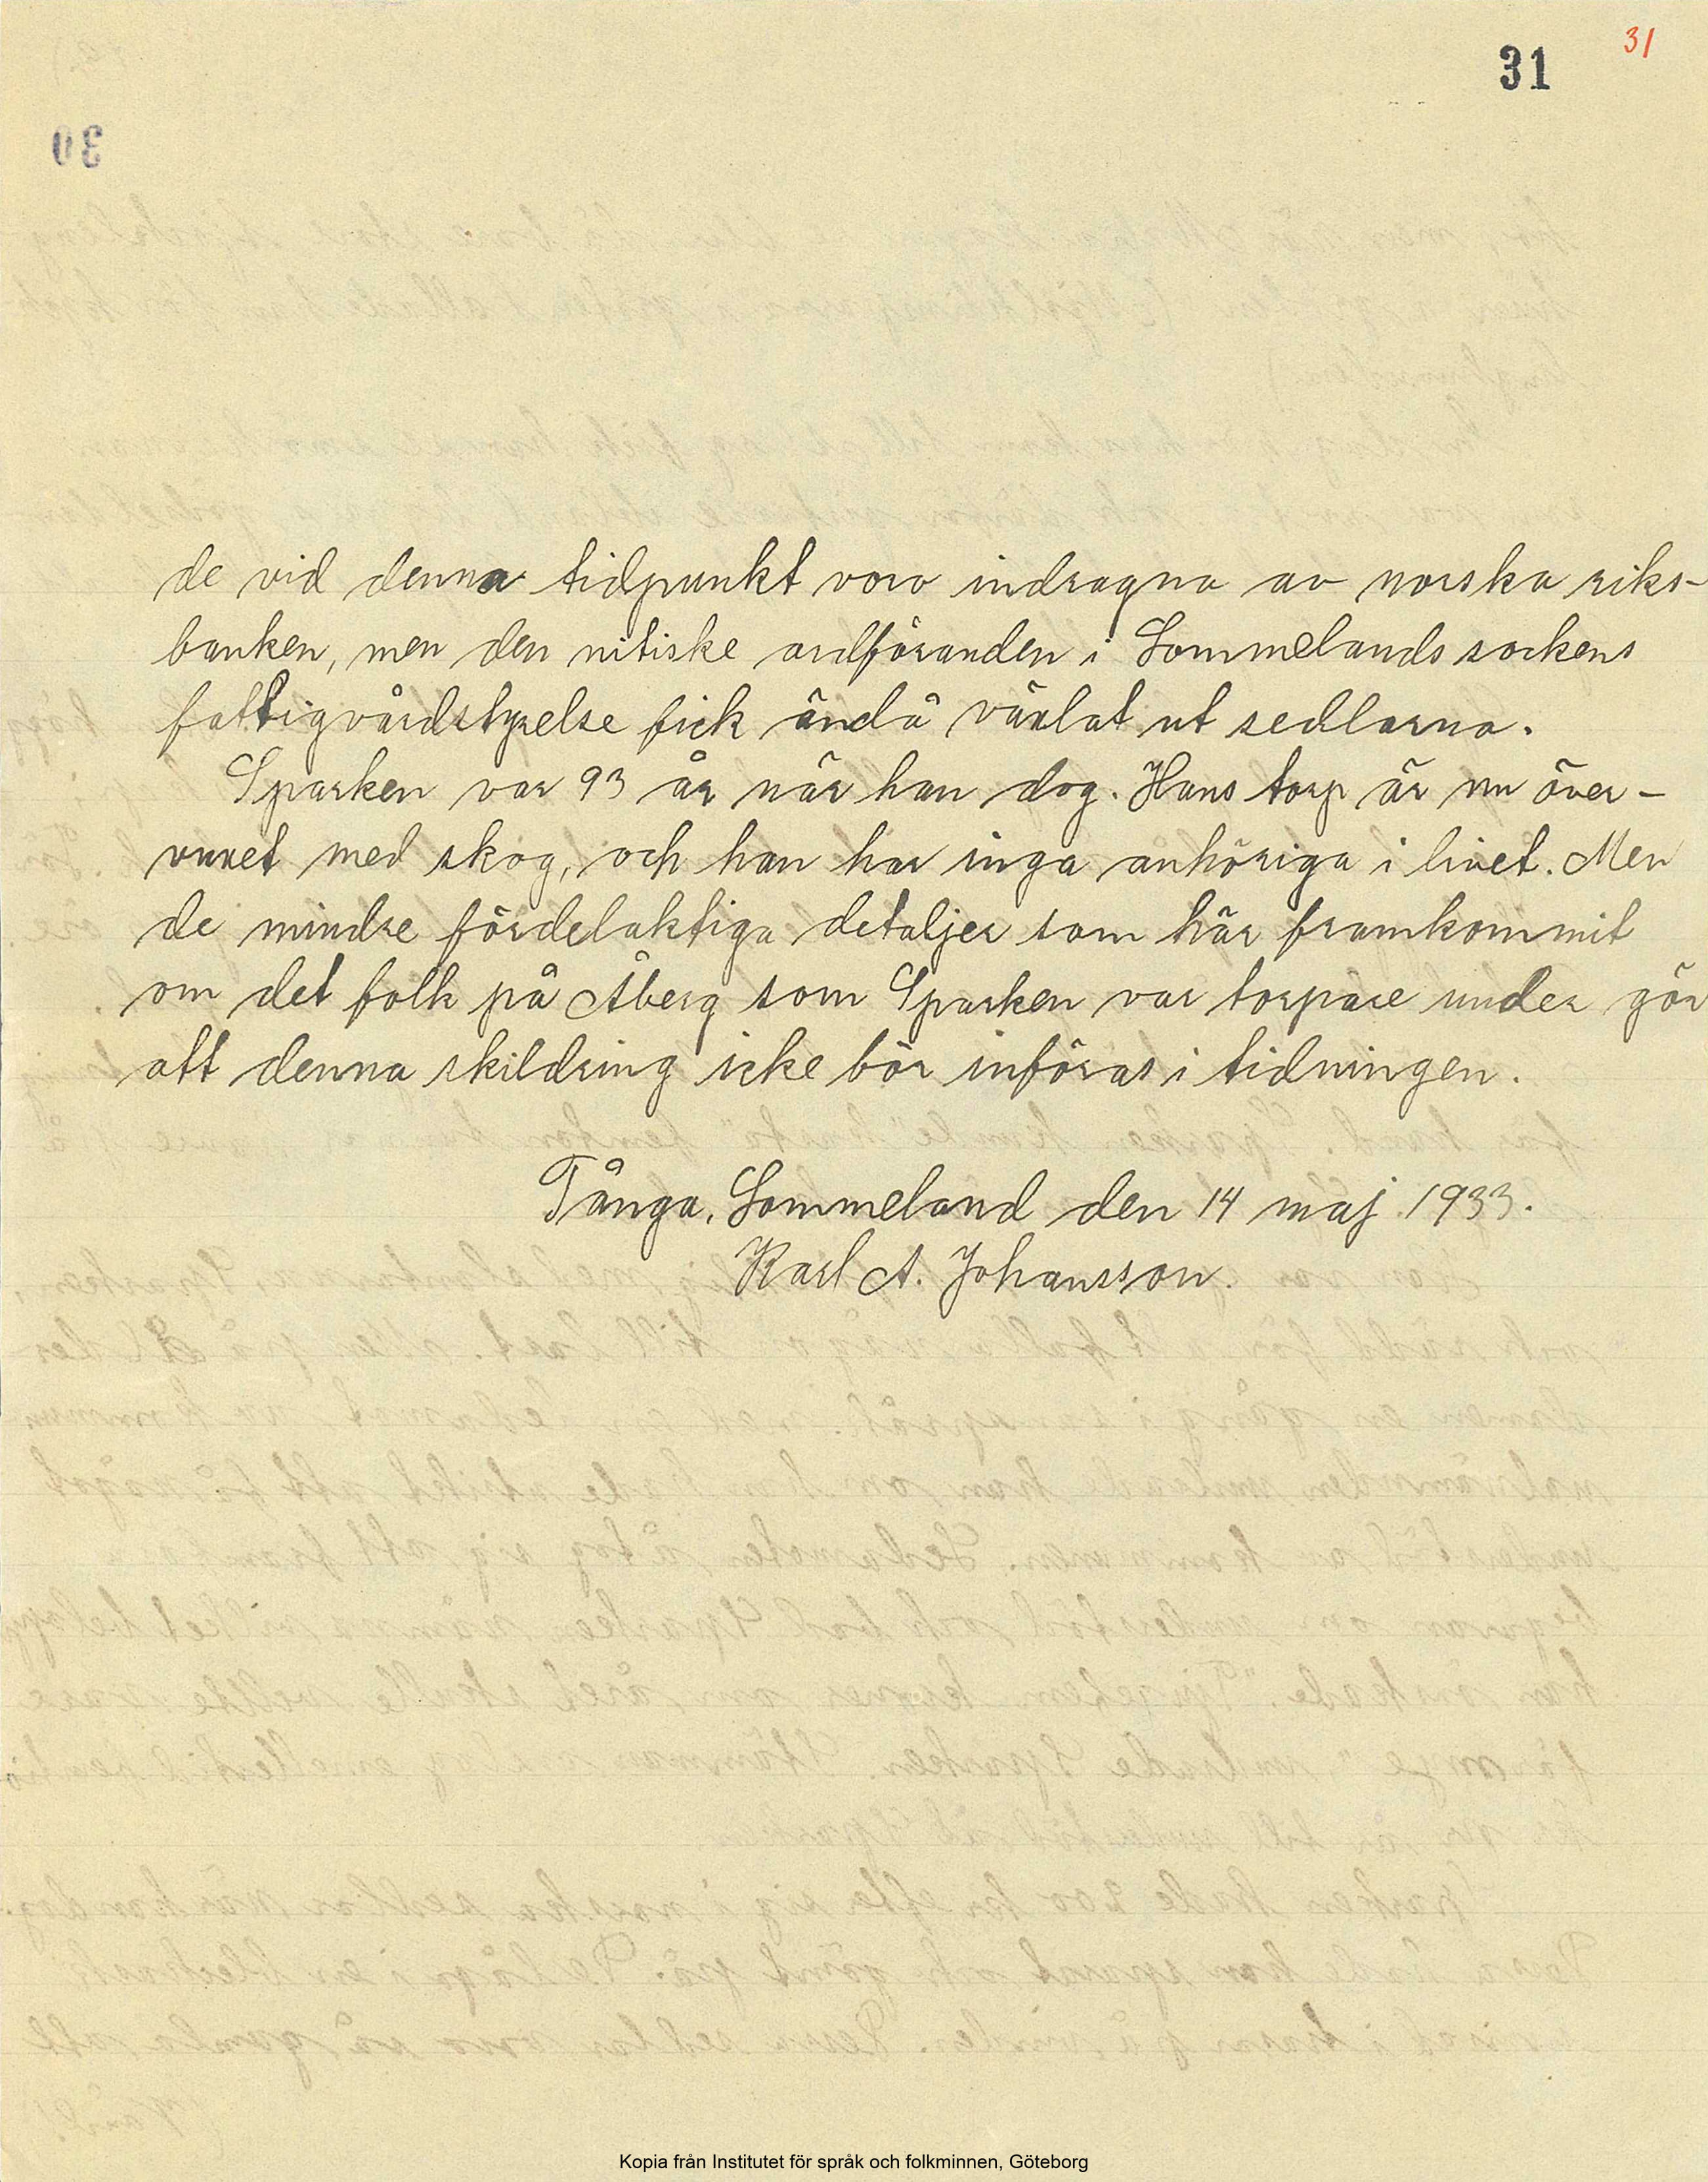 31
31
de vid denna tidpunkt voro indragna av norska riks-
banken, men den nitiske ordföranden i Lommelands sockens
fattigvårdstyrelse fick ändå växlat ut sedlarna.
Sparken var 93 år när han dog. Hans torp är nu över-
vuxet med skog, och han har inga anhöriga i livet. Men
de mindre fördelaktiga detaljer som här framkommit
om det folk på Åberg som Sparken var torpare under gör
att denna skildring icke bör införas i tidningen.
Tånga, Lommeland den 14 maj 1933.
Karl A. Johansson.
Kopia från Institutet för språk och folkminnen, Göteborg